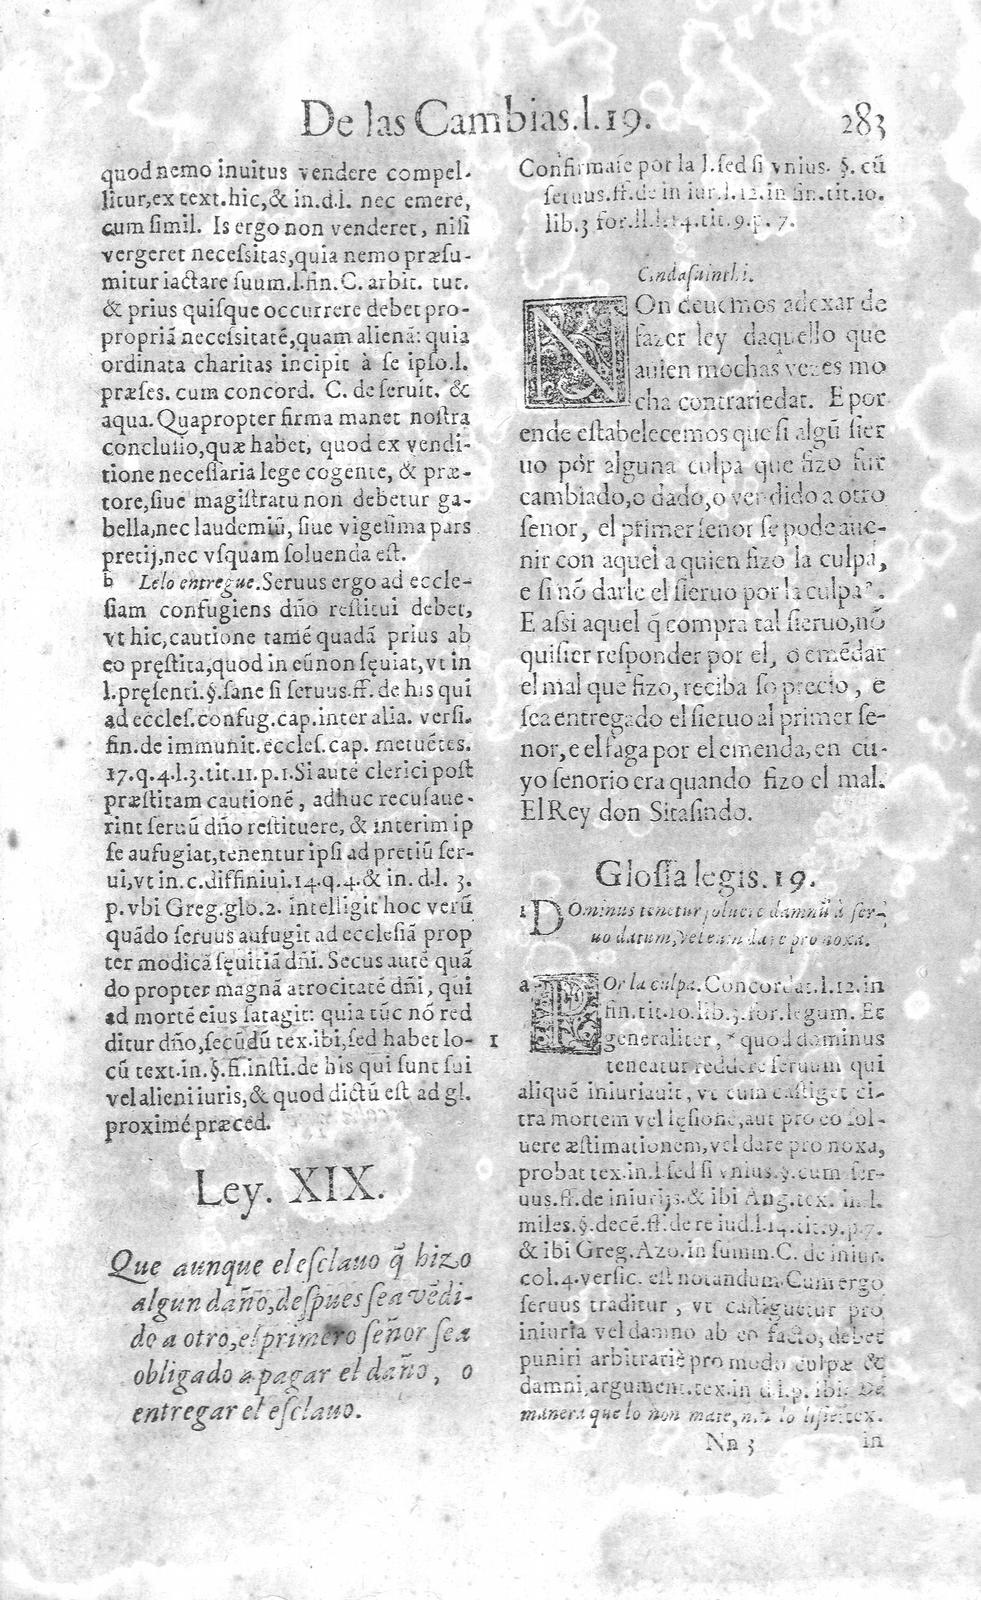 De las Cambias.l.19. 283
quod nemo inuitus vendere compel-
litur,ex text.hic,& in.d.l. nec emere,
cum simil. Is ergo non venderet, nisi
vergeret necessitas,quia nemo præsu-
mitur iactare suum.l.fin.C. arbit. tut.
& prius quisque occurrere debet pro-
propriã necessitatẽ,quam alienã: quia
ordinata charitas incipit à se ipso.l.
præses. cum concord. C. de seruit. &
aqua. Quapropter firma manet nostra
conclusio,quæ habet, quod ex vendi-
tione necessaria lege cogente, & præ-
tore,siue magistratu non debetur ga-
bella,nec laudemiũ, siue vigesima pars
pretij,nec vsquam soluenda est.
b Lelo entregue.Seruus ergo ad eccle-
siam confugiens dño restitui debet,
vt hic,cautione tamẽ quadã prius ab
eo pręstita,quod in eũ non sęuiat,vt in
l.pręsenti.§.sane si seruus.ff. de his qui
ad eccles.confug.cap.inter alia. versi.
fin.de immunit.eccles.cap. metuẽtes.
17.q.4.l.3.tit.11.p.1.Si autẽ clerici post
præstitam cautionẽ, adhuc recusaue-
rint seruũ dño restituere, & interim ip
se aufugiat,tenentur ipsi ad pretiũ ser-
ui,vt in.c.diffiniui.14.q.4.& in.d.l. 3.
p.vbi Greg.glo.2. intelligit hoc verũ
quãdo seruus aufugit ad ecclesiã prop
ter modicã sęuitiã dñi. Secus autẽ quã
do propter magnã atrocitatẽ dñi, qui
ad mortẽ eius satagit: quia tũc nõ red
ditur dño,secũdũ tex.ibi,sed habet lo-
cũ text.in.§.fi.insti.de his qui sunt sui
vel alieni iuris,& quod dictũ est ad gl.
proximẽ præced.
Ley. XIX.
Que aunque el esclauo q̃ hizo
algun daño,despues sea vẽdi-
do a otro,el primero señor sea
obligado a pagar el daño, o
entregar el esclauo.
Confirmase por la l.sed si vnius. §. cũ
seruus.ff.de in iur.l.12.in fin.tit.10.
lib.3 for.ll.l.14.tit.9.p. 7.
NOn deuemos adexar de
fazer ley daquello que
auien mochas vezes mo
cha contrariedat. E por
ende establecemos que si algũ sier
uo por alguna culpa que fizo fur
cambiado,o dado,o vendido a otro
senor, el primer senor se pode aue-
nir con aquel a quien fizo la culpa,
e si nõ darle el sieruo por la culpa.
E assi aquel q̃ compra tal sieruo,nõ
quisier responder por el, o emẽdar
el mal que fizo, reciba so precio, e
sea entregado el sieruo al primer se-
nor,e el faga por el emenda,en cu-
yo senorio era quando fizo el mal.
El Rey don Sitasindo.
Glossa legis.19.
1 DOminus tenetur soluere damnũ à ser-
uo datum,vel eum dare pro noxa.
a POr la culpa.Concordat.l.12.in
fin.tit.10.lib.3.for.legum. Et
1 generaliter, * quod dominus
teneatur reddere seruum qui
aliquẽ iniuriauit, vt eum castiget ci-
tra mortem vel lęsionẽ,aut pro eo sol-
uere æstimationem,vel dare pro noxa,
probat tex.in.l.sed si vnius.§.cum ser-
uus.ff.de iniurijs.& ibi Ang.tex. in.l.
miles.§.decẽ.ff.de re iud.l.14.tit.9.p.7.
& ibi Greg.Azo.in summ.C. de iniur.
col.4.versic. est notandum.Cum ergo
seruus traditur, vt castiguetur pro
iniuria vel damno ab eo facto, debet
puniri arbitrariè pro modo culpæ &
damni,argument.tex.in d.l.p. ibi: De
manera que lo non mate, lo tex.
Nn 3 in